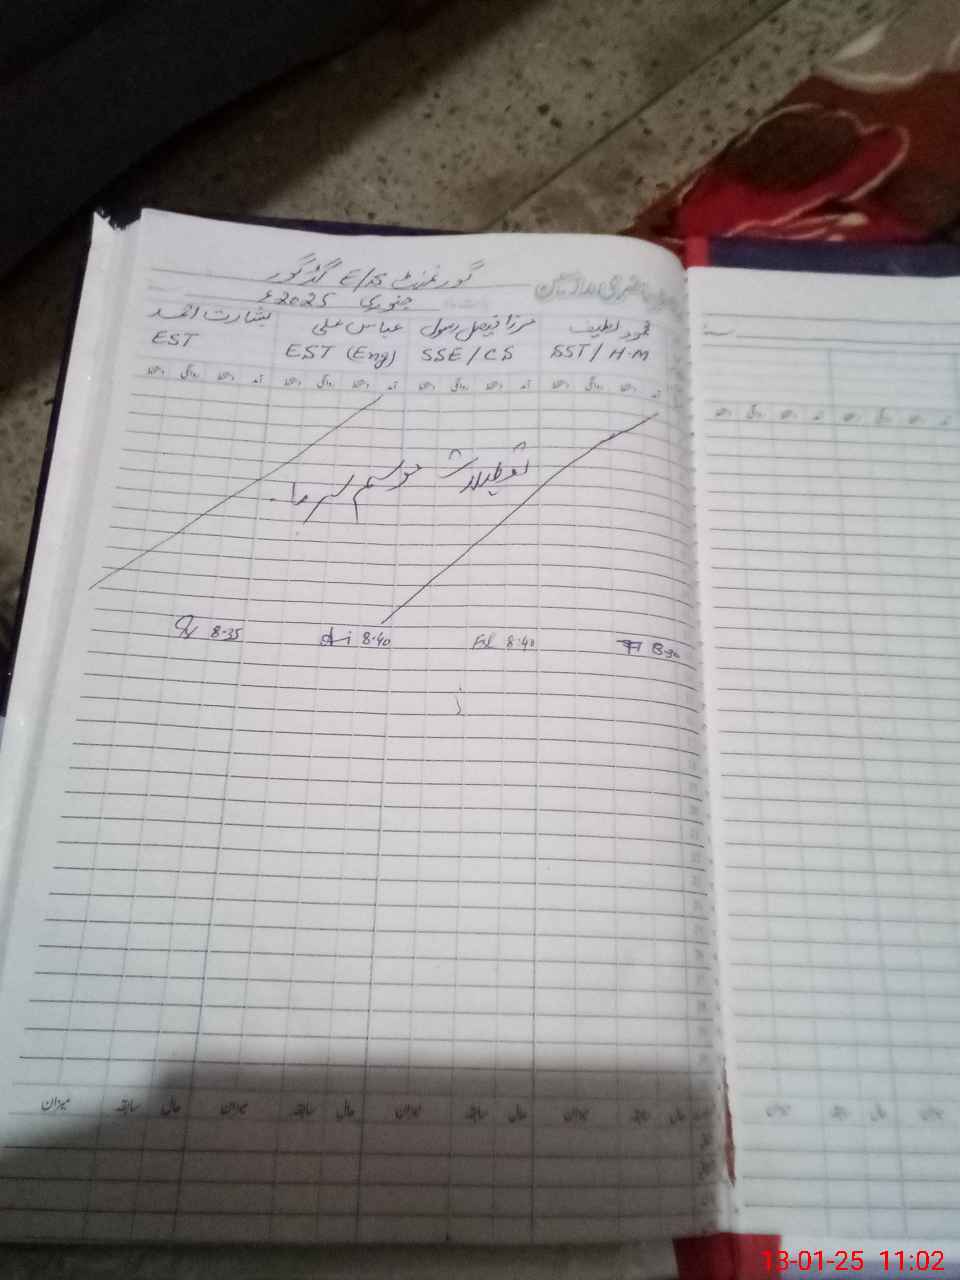 گورنمنٹ E/S گڑگور
حاضری مدرسین
جنوری 2025ء
محمود لطیف
SST/H.M
مرزا فیصل رسول
SSE/CS
عباس علی
EST (Eng)
بشارت احمد
EST
آمد دستخط روانگی دستخط آمد دستخط روانگی دستخط آمد دستخط روانگی دستخط آمد دستخط روانگی دستخط
تعطیلات موسم سرما
8:30
8:40
8:40
8:35
حال سابقہ میزان حال سابقہ میزان حال سابقہ میزان حال سابقہ میزان
13-01-25 11:02